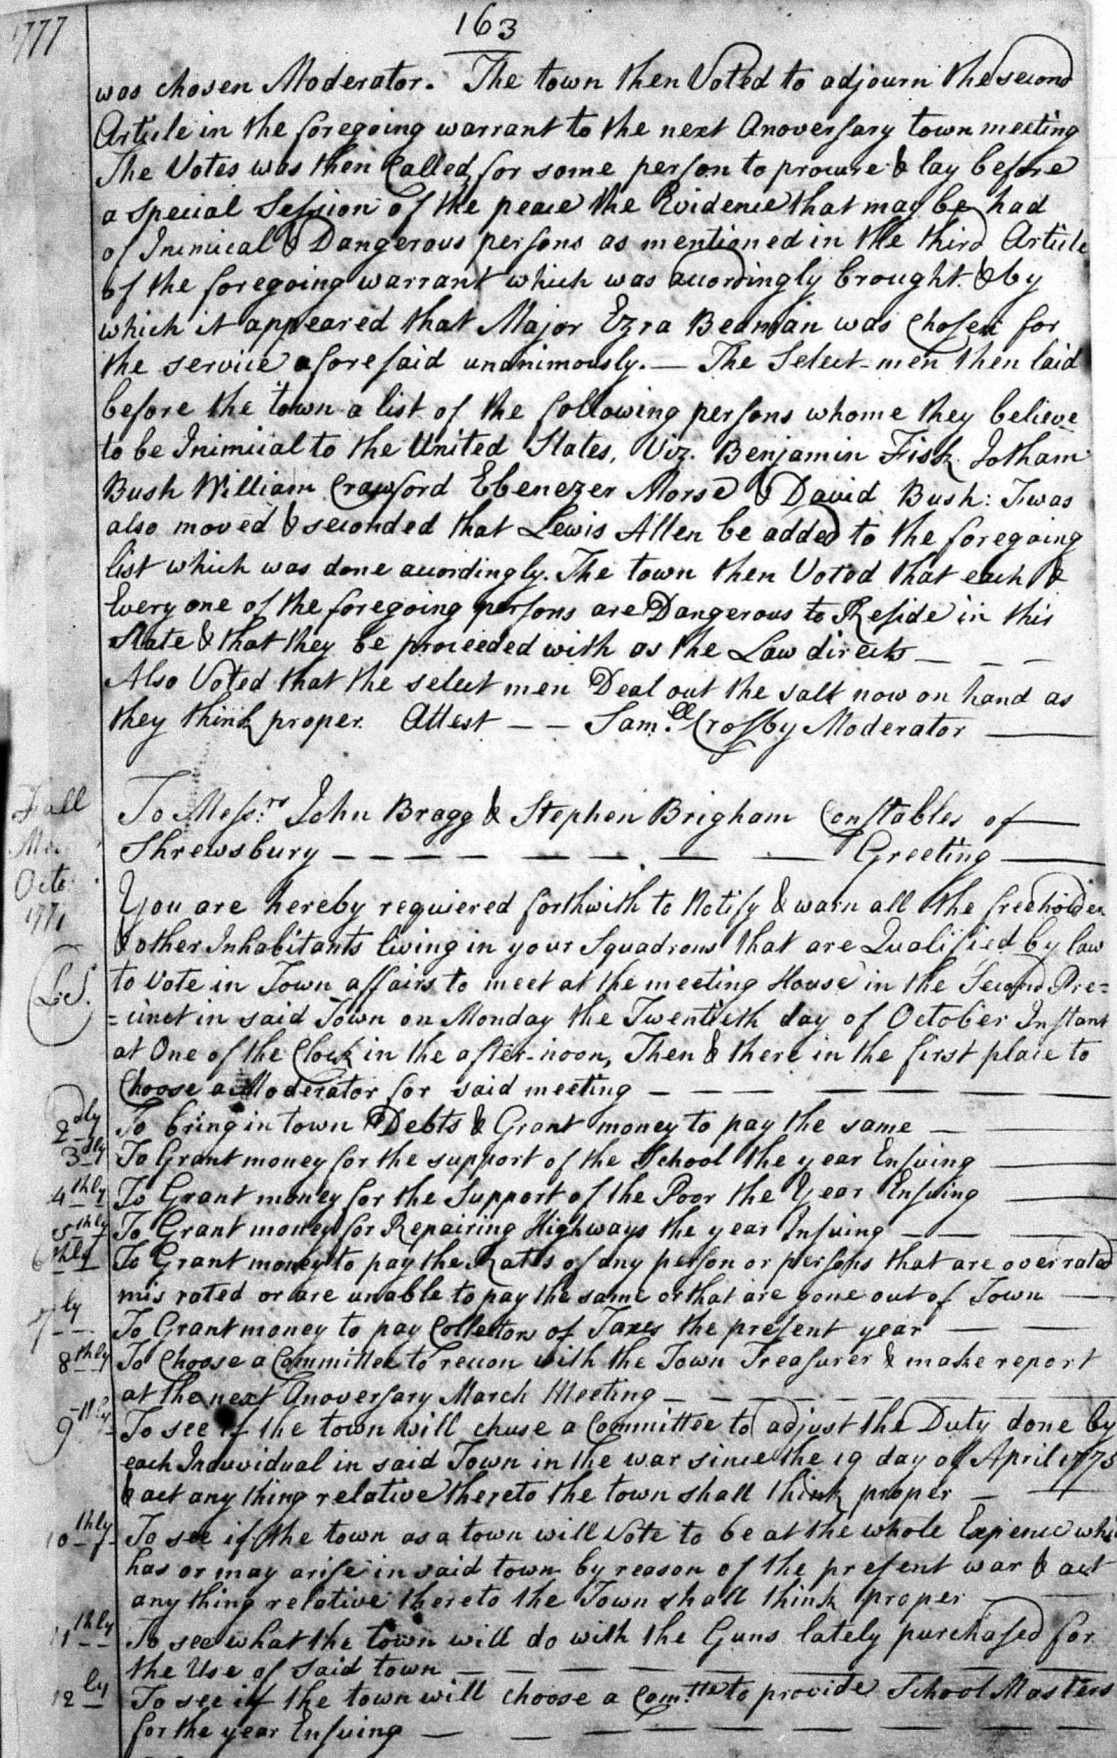 1777
163
was chosen Moderator. The town then Voted to adjourn the second
Article in the foregoing warrant to the next Anoversary town meeting
The Votes was then Called for some person to procure & lay before
a special Session of the peace the Evidence that may be had
of Inimical & Dangerous persons as mentioned in the third Article
of the foregoing warrant which was accordingly brought & by
which it appeared that Major Ezra Beaman was Chosen for
the service aforesaid unanimously. — The Select-men then laid
before the town a list of the following persons whome they believe
to be Inimical to the United States, Viz. Benjamin Fisk Jotham
Bush William Crawford Ebenezer Morse & David Bush: Twas
also moved & seconded that Lewis Allen be added to the foregoing
list which was done accordingly. The town then Voted that each &
Every one of the foregoing persons are Dangerous to Reside in this
State & that they be proceeded with as the Law directs — — —
Also Voted that the select men Deal out the salt now on hand as
they think proper. Attest — — Sam.ll Crosby Moderator —
Fall
Octo
To Mess.rs John Bragg & Stephen Brigham Constables of —
Shrewsbury — — — — — — — — Greeting —
You are hereby requiered forthwith to Notify & warn all the freeholders
& other Inhabitants living in your Squadrons that are Qualified by law
L.S. to Vote in Town affairs to meet at the meeting House in the Second Pre=
=cinct in said Town on Monday the Twentieth day of October Instant
at One of the Clock in the after-noon, Then & there in the first place to
Choose a Moderator for said meeting — — — — — —
2dly To bring in town Debts & Grant money to pay the same — —
3dly To Grant money for the support of the School the year Ensuing —
4thly To Grant money for the Support of the Poor the Year Ensuing —
5thly To Grant money for Repairing Highways the year Insuing — — —
6thly To Grant money to pay the Rates of any person or persons that are over rated
mis rated or are unable to pay the same or that are gone out of Town —
7ly To Grant money to pay Collectors of Taxes the present year — —
8thly To Choose a Committee to recon with the Town Treasurer & make report
at the next Anoversary March Meeting — — — — — — —
9thly To see if the town will chuse a Committee to adjust the Duty done by
each Individual in said Town in the war since the 19 day of April 1775
& act any thing relative thereto the town shall think proper — —
10thly To see if the town as a town will Vote to be at the whole Expence whi
has or may arise in said town by reason of the present war & act
any thing relative thereto the Town shall think proper — —
11thly To see what the town will do with the Guns lately purchased for
the Use of said town — — — — — — — —
12ly To see if the town will choose a Com.tte to provide School Masters
for the year Ensuing — — — — — — — —